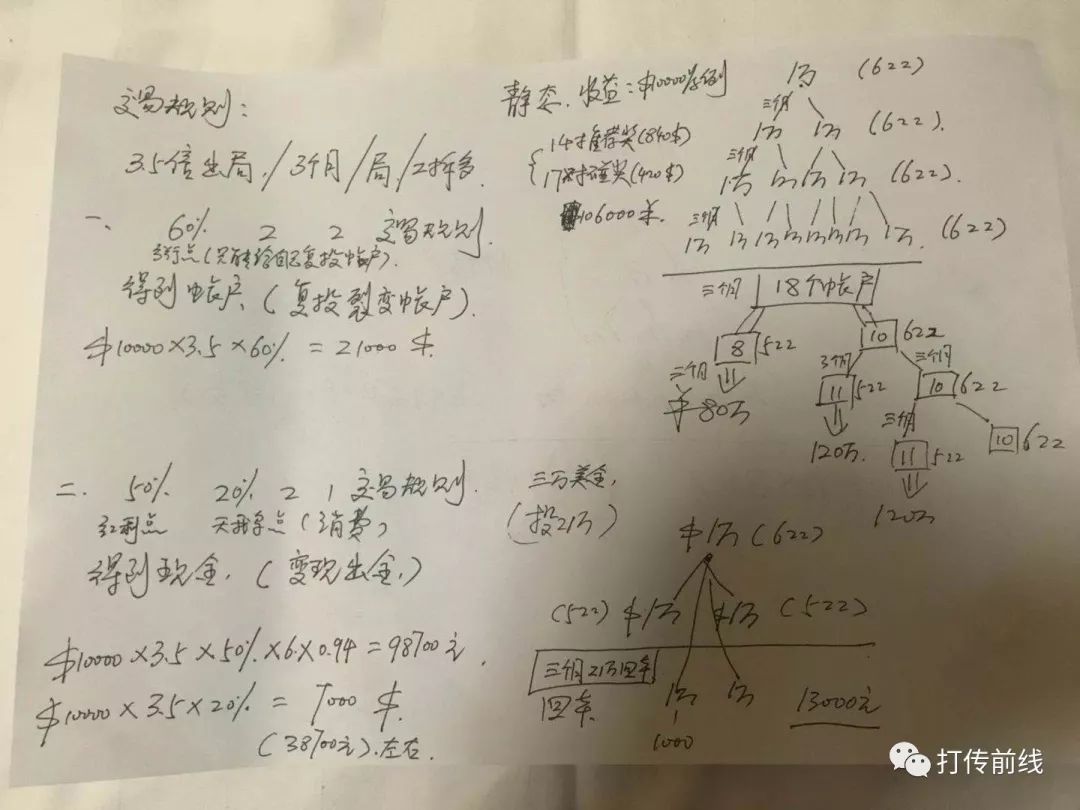 交易规则:
3.5倍出局/3个月/局/2拆多.
一、 60% 2 2 交易规则.
(只能转给自己复投帐户).
得到帐户、(复投裂变帐户).
$10000×3.5×60% = 21000 $.
二. 50% 20% 2 1 交易规则.
红利点 (消费)
得到现金,(变现出金,)
$10000×3.5×50%×6×0.94=98700元.
$10000×3.5×20% = 7000 $.
(38700元).左右.
静态.收益:$10000为例
14推荐奖(840$)
17对碰奖(420$)
106000年.
1万 (622)
三个月
1万 1万 (622).
三个月
1万 1万 1万 1万 (622).
三个月
1万 1万 1万 1万 1万 1万 1万 (622)
三个月 18个帐户
8 522 10 622
三个月 3个月 三个月
¥80万 11 522 10 622
120万. 三个月
11 522 10 622
120万
三万美金,
(投21万)
$1万(622)
(522) $1万 $1万 (522)
三个月21万回本
回本. 1万 1万 13000元
1000
打传前线